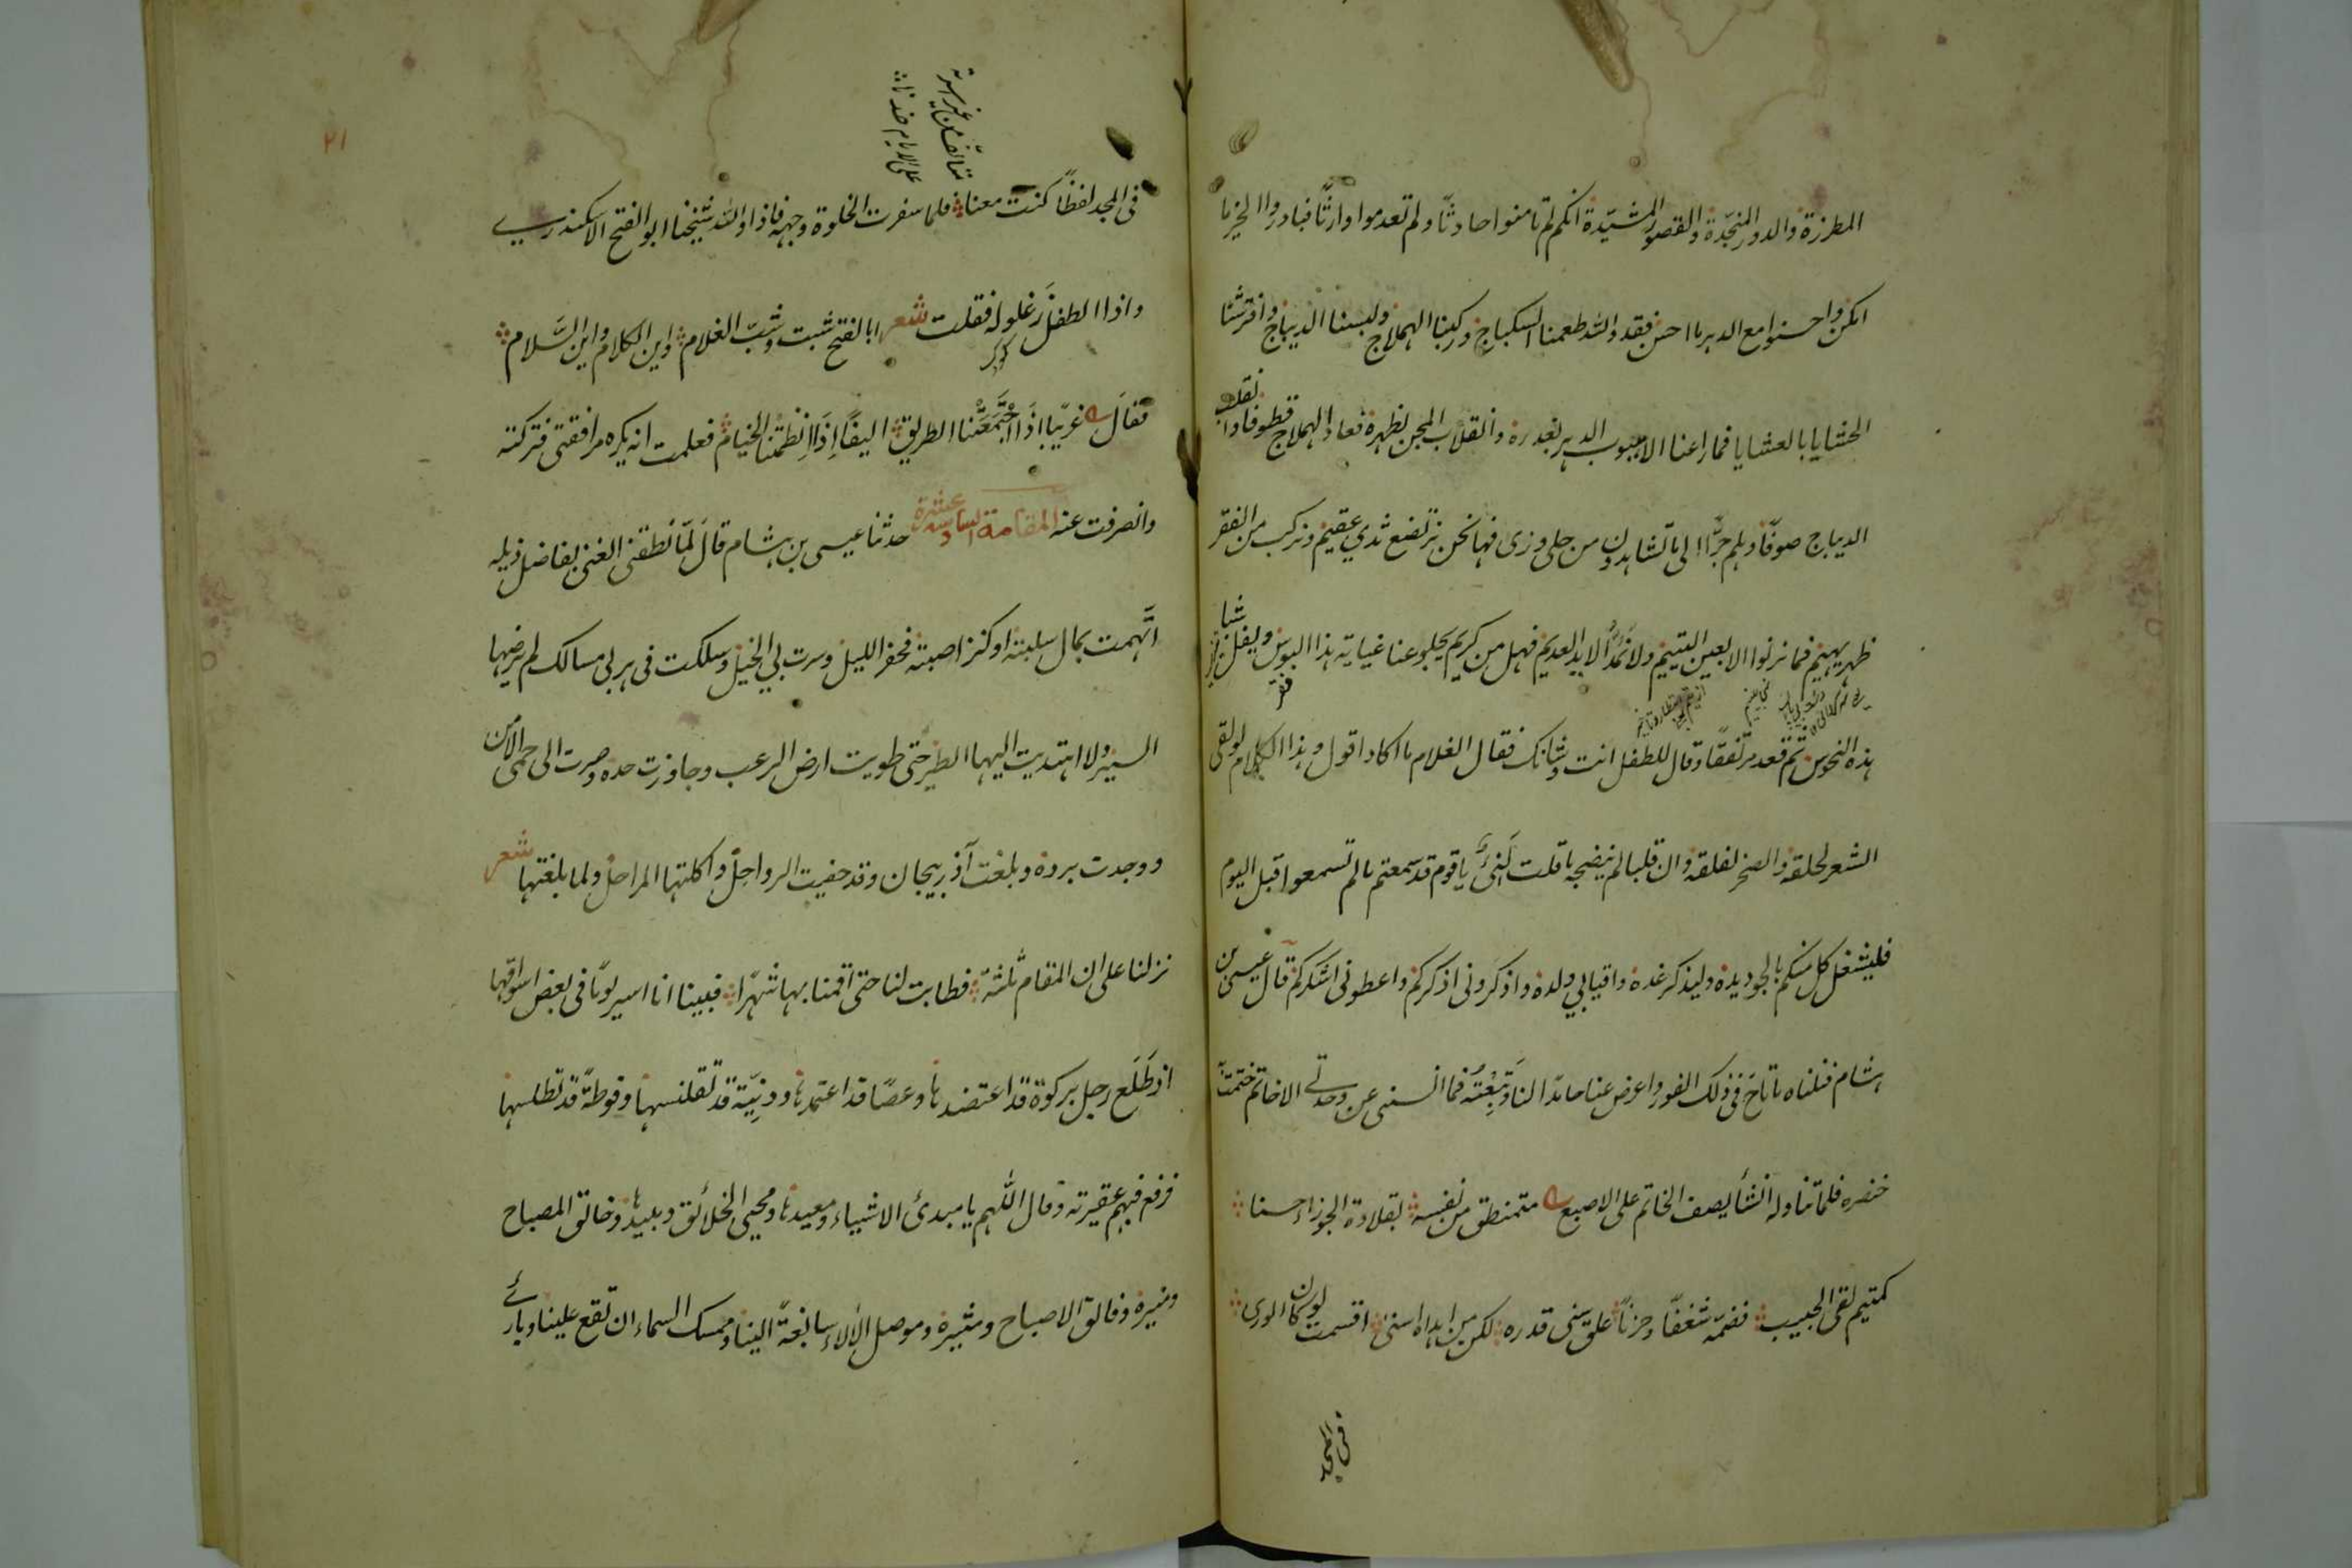 المطرزة والدور المنجّدة والقصور المشيّدة انكم لم تامنوا حادثًا ولم تعدموا وارثًا فبادروا الخير ما
امكن واحسنوا مع الدهر ما احسن فقد والله طعمنا السكباج وركبنا الهملاج ولبسنا الديباج وافترشنا
الحشايا بالعشايا فما راعنا الا هبوب الدهر بغدره وانقلاب المجن لظهره فعاد الهملاج قطوفا وانقلب
الديباج صوفًا وهلم جرًّا الى ما تشاهدون من حلى وزى فها نحن نرتضع ثدي عقيم ونركب من الفقر
ظهر بهيم فما نرنوا الا بعين اليتيم ولا نمُدُّ الا يد العديم فهل من كريم يجلو عنا غياية هذا البوس ويفل شبا
هذه النحوس ثم قعد مرتفقًا وقال للطفل انت وشانك فقال الغلام ما اكاد اقول وهذا الكلام لو لقى
الشعر لحلقه والصخر لفلقه وان قلبا لم ينضجه ما قلت لَنِيٌّ يا قوم قد سمعتم ما لم تسمعوا قبل اليوم
فليشغل كل منكم بالجود يده وليذكر غده واقيا بي ولده واذكرونى اذكركم واعطونى اشكركم قال عيسى بن
هشام فنلناه ما تاح فى ذلك الفور واعرض عنا حامدًا لنا وتَبِعْتُه فما انسنى عن وحدتى الا خاتم ختمت
خنصره فلما تناوله انشأ يصف الخاتم على الاصبع متمنطق من نفسه بقلادة الجوزاء حسنا
كمتيم لقى الحبيب فضمّه شغفًا وحزنًا علق سنى قدره لكن من اهداه اسنى اقسمت لو كان الورى
٢١
فى المجد لفظًا كنت معنا فلما سفرت الخلوة وجهه فاذا والله شيخنا ابو الفتح الاسكندرى
واذا الطفل زغلوله فقلت شعر ابا الفتح شبت وشبّ الغلام واين الكلام واين السَّلام
فقال غريبًا اذا اجْتَمَعَتْنا الطريق اليفًا اذا انظمتنا الخيام فعلمت انه يكره مرافقتى فتركته
وانصرفت عنه المقامة السادسة عشرة حدثنا عيسى بن هشام قال لمّا نطقنى الغنى بفاضل ذيله
اتّهمت بمال سلبته او كنز اصبته فحفز الليل وسرت بي الخيل وسلكت فى هربى مسالك لم يرضها
السير ولا اهتديت اليها الطير حتى طويت ارض الرعب وجاوزت حده وصرت الى حمى الامن
ووجدت برده وبلغت آذربيجان وقد حفيت الرواحل واكلتها المراحل ولما بلغتها شعر
نزلنا على ان المقام ثلثة فطابت لنا حتى اقمنا بها شهرًا فبينا انا اسير يومًا فى بعض اسواقها
اذ طَلَع رجل بركوة قد اعتضدها وعصًا قد اعتمدها ودنِيّة قد تقلنسها وفوطة قد تطلسها
فرفع فيهم عقيرته وقال اللهم يا مبدئ الاشياء ومعيدها ومحيى الخلائق ومبيدها وخالق المصباح
ومنيره وفالق الاصباح ومثيره وموصل الآلاء سابغةً الينا وممسك السماء ان تقع علينا وبارئ